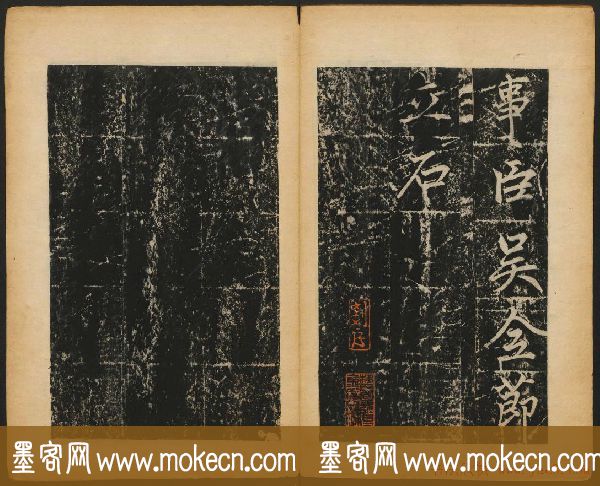 事臣吴金節
立石
墨客网 www.mokecn.com 墨客网 www.mokecn.com